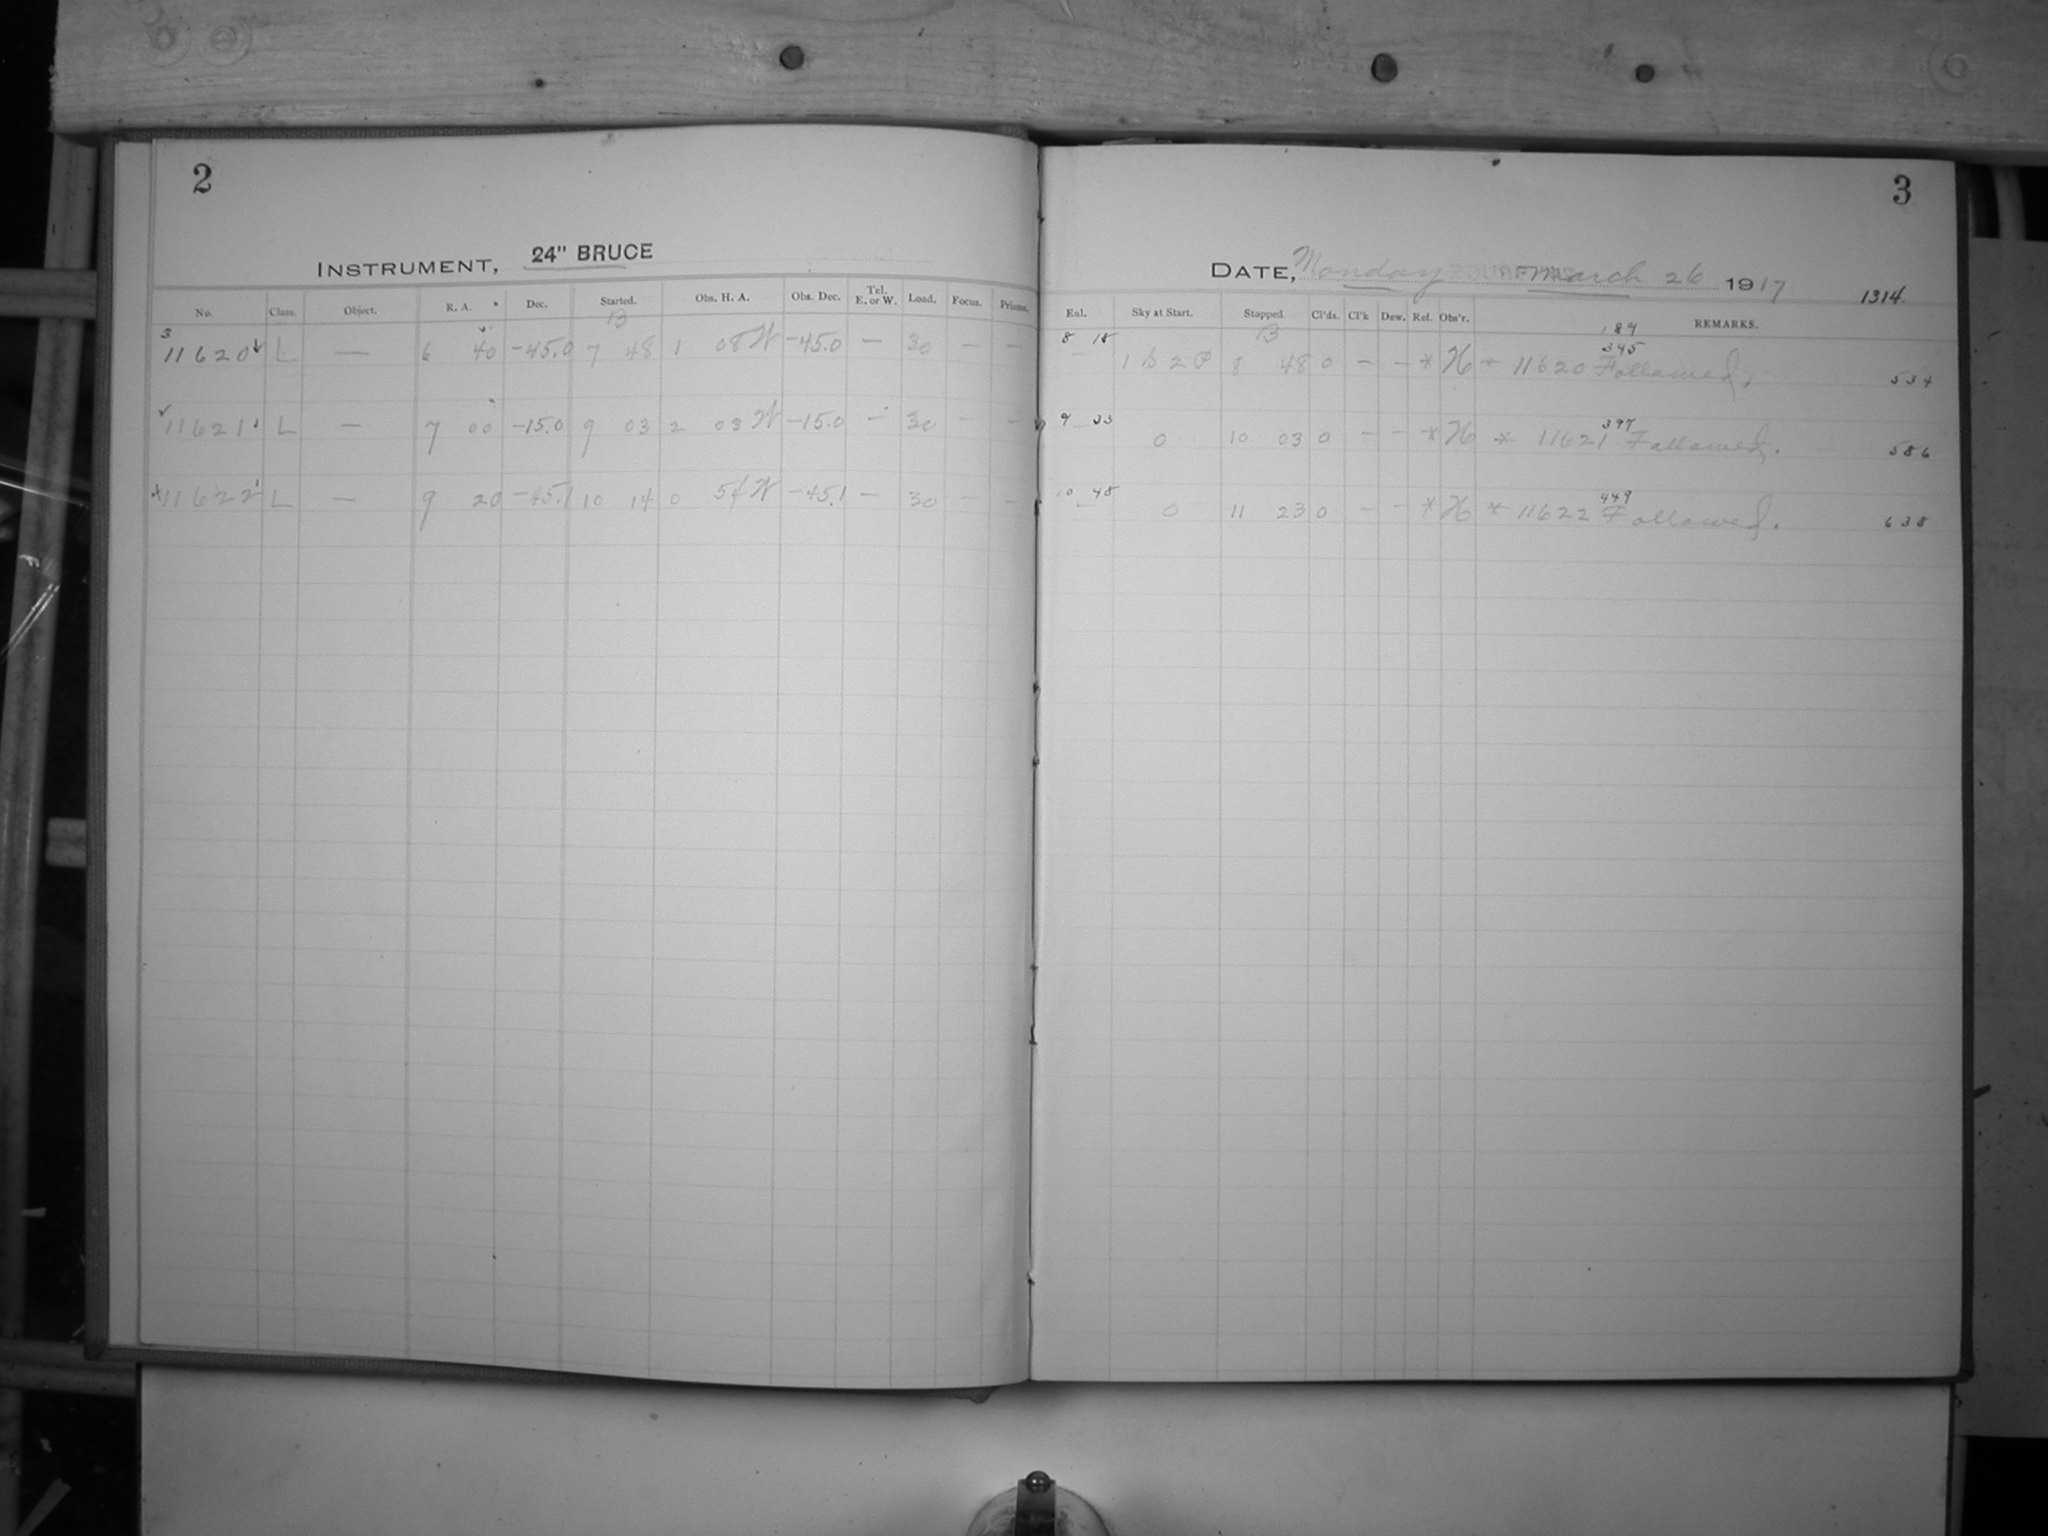 2
INSTRUMENT, 24" BRUCE
No. Class. Object. R. A. Dec. Started. Obs. H. A. Obs. Dec. Tel. E. or W. Load. Focus. Prisms.
B
3
11620 L — 6 40 -45.0 7 48 1 08 W -45.0 — 30 — —
11621 L — 7 00 -15.0 9 03 2 03 W -15.0 — 30 — —
11622 L — 9 20 -45.1 10 14 0 54 W -45.1 — 30 — —
3
DATE, Monday March 26 1917
1314.
Eal. Sky at Start. Stopped Cl'ds. Cl'k Dew. Ref. Obs'r. REMARKS.
B 189
8 18 345
1 S 2 P 8 48 0 — — * H * 11620 Followed. 534
9 33 397
0 10 03 0 — — * H * 11621 Followed. 586
10 48 449
0 11 23 0 — — * H * 11622 Followed. 638